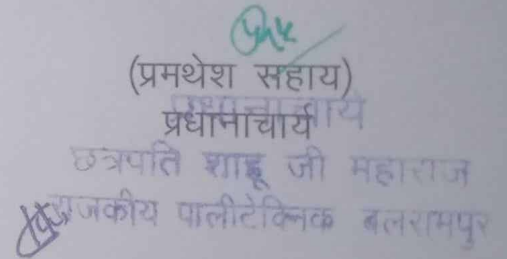 (प्रमथेश सहाय)
प्रधानाचार्य
प्रधानाचार्य
छत्रपति शाहू जी महाराज
राजकीय पालीटेक्निक बलरामपुर